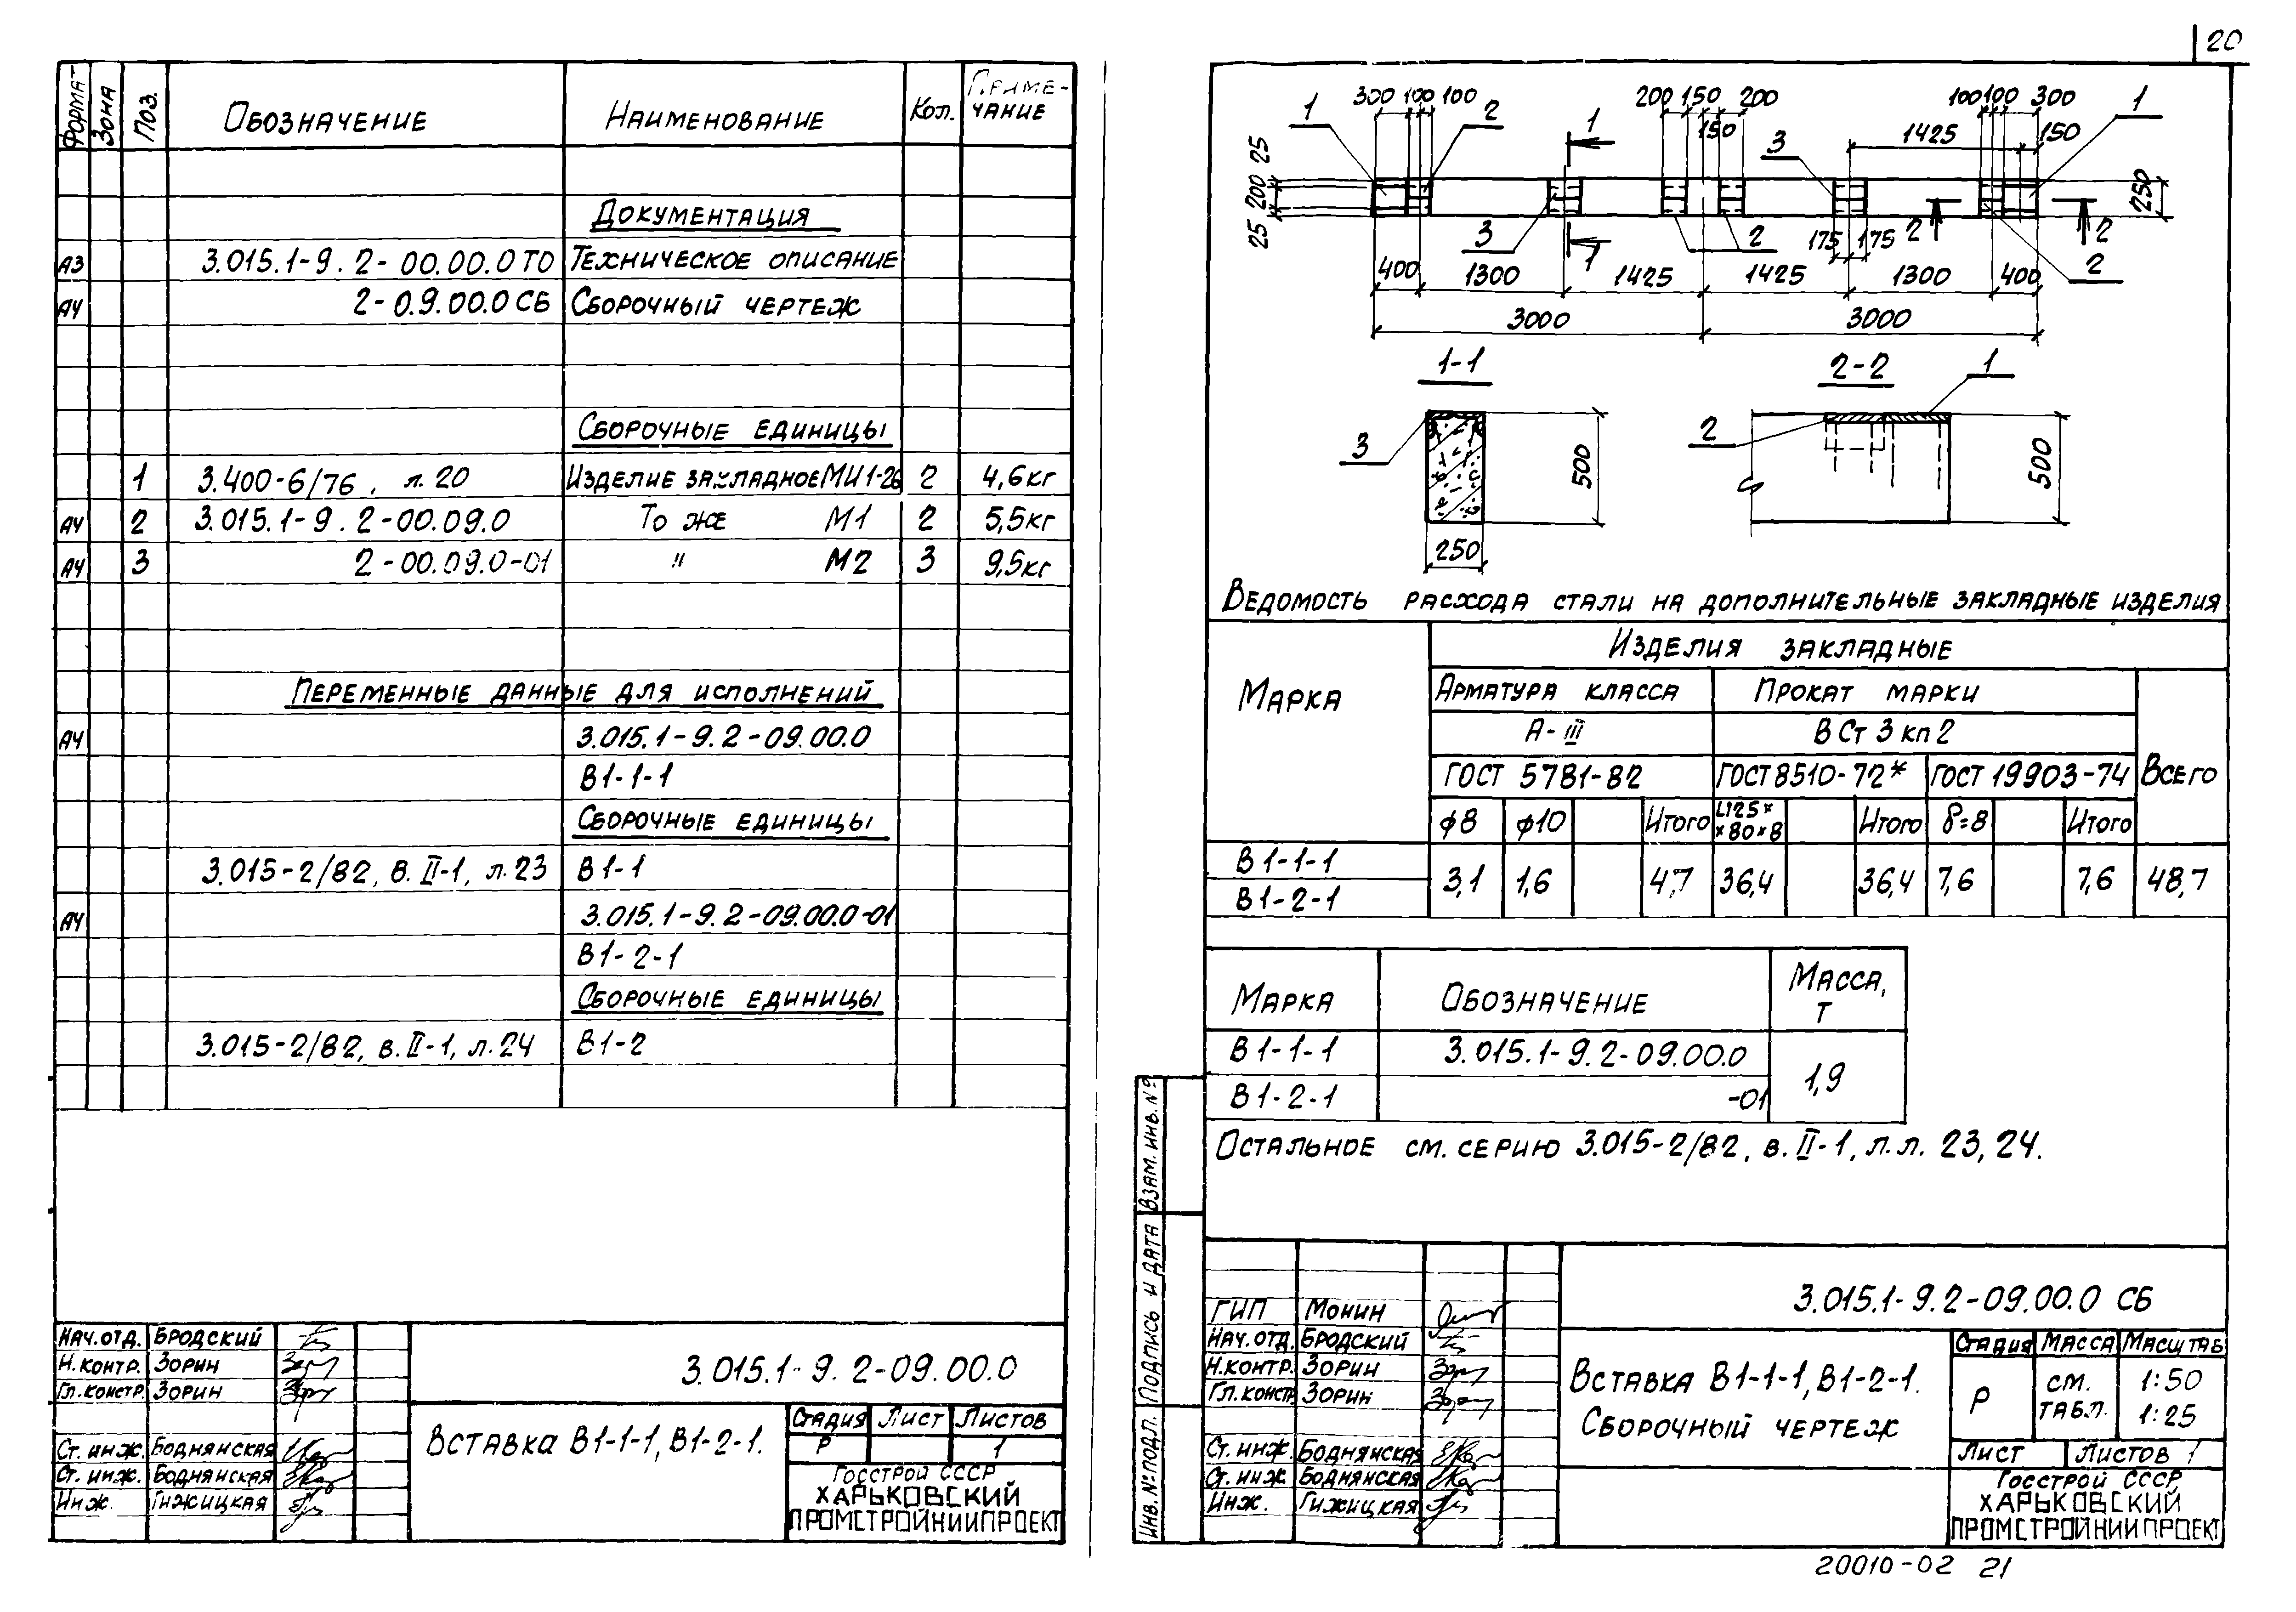 20
Формат
Зона
Поз.
Обозначение
Наименование
Кол.
Приме-
чание
Документация
А3 3.015.1-9.2-00.00.0 ТО Техническое описание
А4 2-0.9.00.0 СБ Сборочный чертеж
Сборочные единицы
1 3.400-6/76, л.20 Изделие закладное МИ1-26 2 4,6кг
А4 2 3.015.1-9.2-00.09.0 То же М1 2 5,5кг
А4 3 2-00.09.0-01 " М2 3 9,5кг
Переменные данные для исполнений
А4 3.015.1-9.2-09.00.0
В1-1-1
Сборочные единицы
3.015-2/82, в. II-1, л.23 В1-1
А4 3.015.1-9.2-09.00.0-01
В1-2-1
Сборочные единицы
3.015-2/82, в. II-1, л.24 В1-2
Нач.отд. Бродский
Н.контр. Зорин
Гл.констр. Зорин
Ст. инж. Боднянская
Ст. инж. Боднянская
Инж. Гижицкая
3.015.1-9.2-09.00.0
Вставка В1-1-1, В1-2-1.
Стадия Лист Листов
Р 1
Госстрой СССР
ХАРЬКОВСКИЙ
ПРОМСТРОЙНИИПРОЕКТ
1 300 100 100 2 1 200 150 200 100 100 300 1
150 3 1425 150
25 200 25
250
3 1 2 175 175 2 2 2
400 1300 1425 1425 1300 400
3000 3000
1-1 2-2 1
3 500 2 500
250
Ведомость расхода стали на дополнительные закладные изделия
Марка
Изделия закладные
Арматура класса Прокат марки
А-III ВСт 3 кп2
ГОСТ 5781-82 ГОСТ 8510-72* ГОСТ 19903-74 Всего
ф8 ф10 Итого L125× ×80×8 Итого δ=8 Итого
В1-1-1
В1-2-1
3,1 1,6 4,7 36,4 36,4 7,6 7,6 48,7
Марка Обозначение Масса, т
В1-1-1 3.015.1-9.2-09.00.0
В1-2-1 -01
1,9
Остальное см. серию 3.015-2/82, в. II-1, л.л. 23, 24.
Взам. инв. №
Подпись и дата
Инв. № подл.
ГИП Монин
Нач. отд. Бродский
Н.контр. Зорин
Гл. констр. Зорин
Ст. инж. Боднянская
Ст. инж. Боднянская
Инж. Гижицкая
3.015.1-9.2-09.00.0 СБ
Вставка В1-1-1, В1-2-1.
Сборочный чертеж
Стадия Масса Масштаб
Р см. табл. 1:50
1:25
Лист Листов 1
Госстрой СССР
ХАРЬКОВСКИЙ
ПРОМСТРОЙНИИПРОЕКТ
20010-02 21